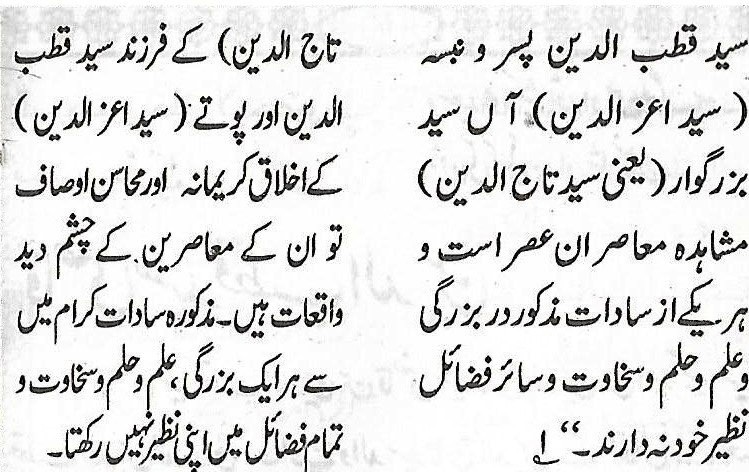 سید قطب الدین پسر و نبسہ
( سید اعز الدین) آں سید
بزرگوار (یعنی سید تاج الدین)
مشاہدہ معاصران عصر است و
ہر یکے از سادات مذکور در بزرگی
وعلم وحلم وسخاوت وسائر فضائل
نظیر خود نہ دارند۔‘‘ ۱
تاج الدین) کے فرزند سید قطب
الدین اور پوتے ( سید اعز الدین)
کے اخلاق کریمانہ اور محاسن اوصاف
تو ان کے معاصرین کے چشم دید
واقعات ہیں۔ مذکورہ سادات کرام میں
سے ہر ایک بزرگی، علم وحلم وسخاوت و
تمام فضائل میں اپنی نظیر نہیں رکھتا۔